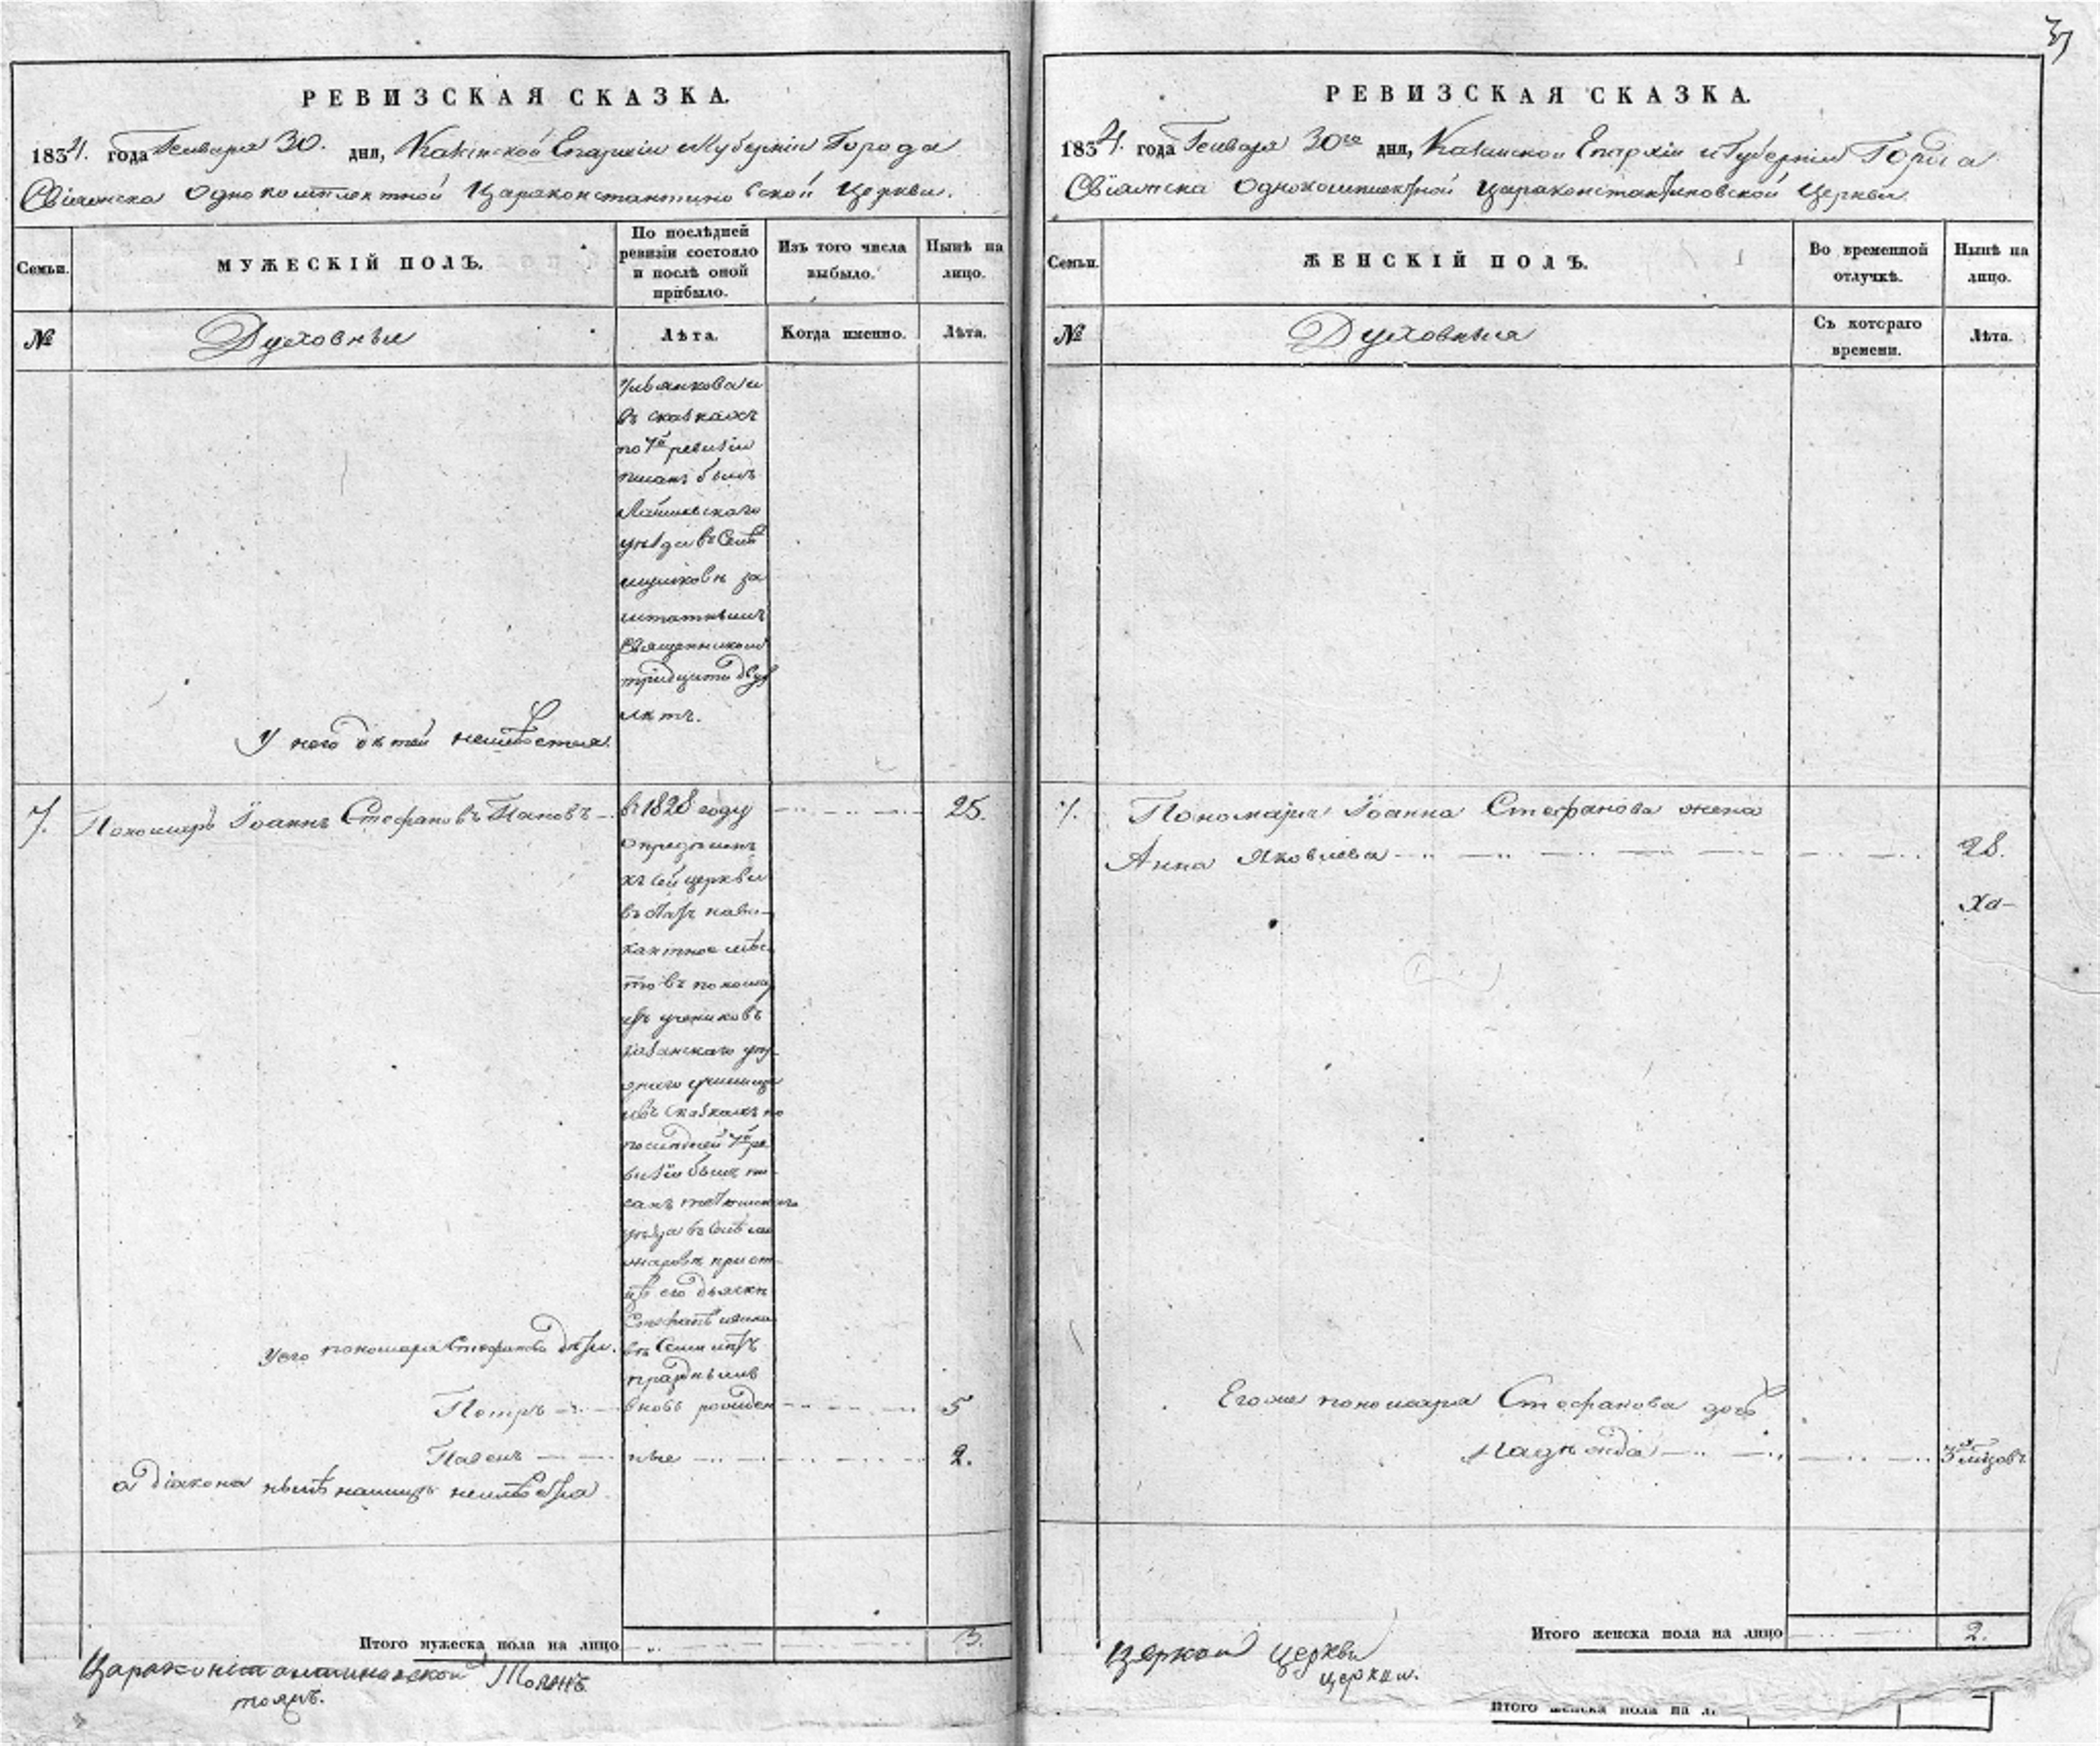 31
РЕВИЗСКАЯ СКАЗКА.
1834. года Генваря 30. дня, Казанской Епархіи и Губерніи Города
Свіяжска Однокомплектной Цареконстантиновской Церкви.
Семьи.
МУЖЕСКІЙ ПОЛЪ.
По послѣдней ревизіи состояло и послѣ оной прибыло.
Изъ того числа выбыло.
Нынѣ на лицо.
№
Духовныи
Лѣта.
Когда именно.
Лѣта.
въ сказкахъ
по 7й ревизіи
писанъ былъ
Лаишевскаго
уѣзда въ Селѣ
за
штатнымъ
Священникомъ
тридцати двух
лѣтъ.
У него дѣтей неимѣется.
7. Пономарь Іоаннъ Стефановъ Пановъ 25.
въ 1828 году
опредѣленъ
къ сей церкви
въ
кантное мѣс
то въ понома
изъ учениковъ
Казанскаго уѣз
днаго училища
и въ Сказкахъ по
послѣдней 7й ре
визіи былъ пи
санъ тетюшскаго
уѣзда въ Селѣ
при от
цѣ его дьячкѣ
Стефанѣ
въ Семи лѣтъ
празднымъ
У сего пономаря Стефанова дѣти.
Петръ вновь рожден 5
Павелъ ные 2.
а діакона нынѣ неимѣется
Итого мужеска пола на лицо 3.
Цареконстантиновской
РЕВИЗСКАЯ СКАЗКА.
1834. года Генваря 30го дня, Казанской Епархіи и Губерніи Города
Свіяжска Однокомплектной Цареконстантиновской Церкви.
Семьи.
ЖЕНСКІЙ ПОЛЪ.
Во временной отлучкѣ.
Нынѣ на лицо.
№
Духовныя
Съ котораго времени.
Лѣта.
7. Пономаря Іоанна Стефанова жена
Анна Яковлева 28.
Его же пономаря Стефанова дочь
Надежда 3х мѣсцовъ
Итого женска пола на лицо 2.
Церкви
церкви.
Итого женска пола на ли